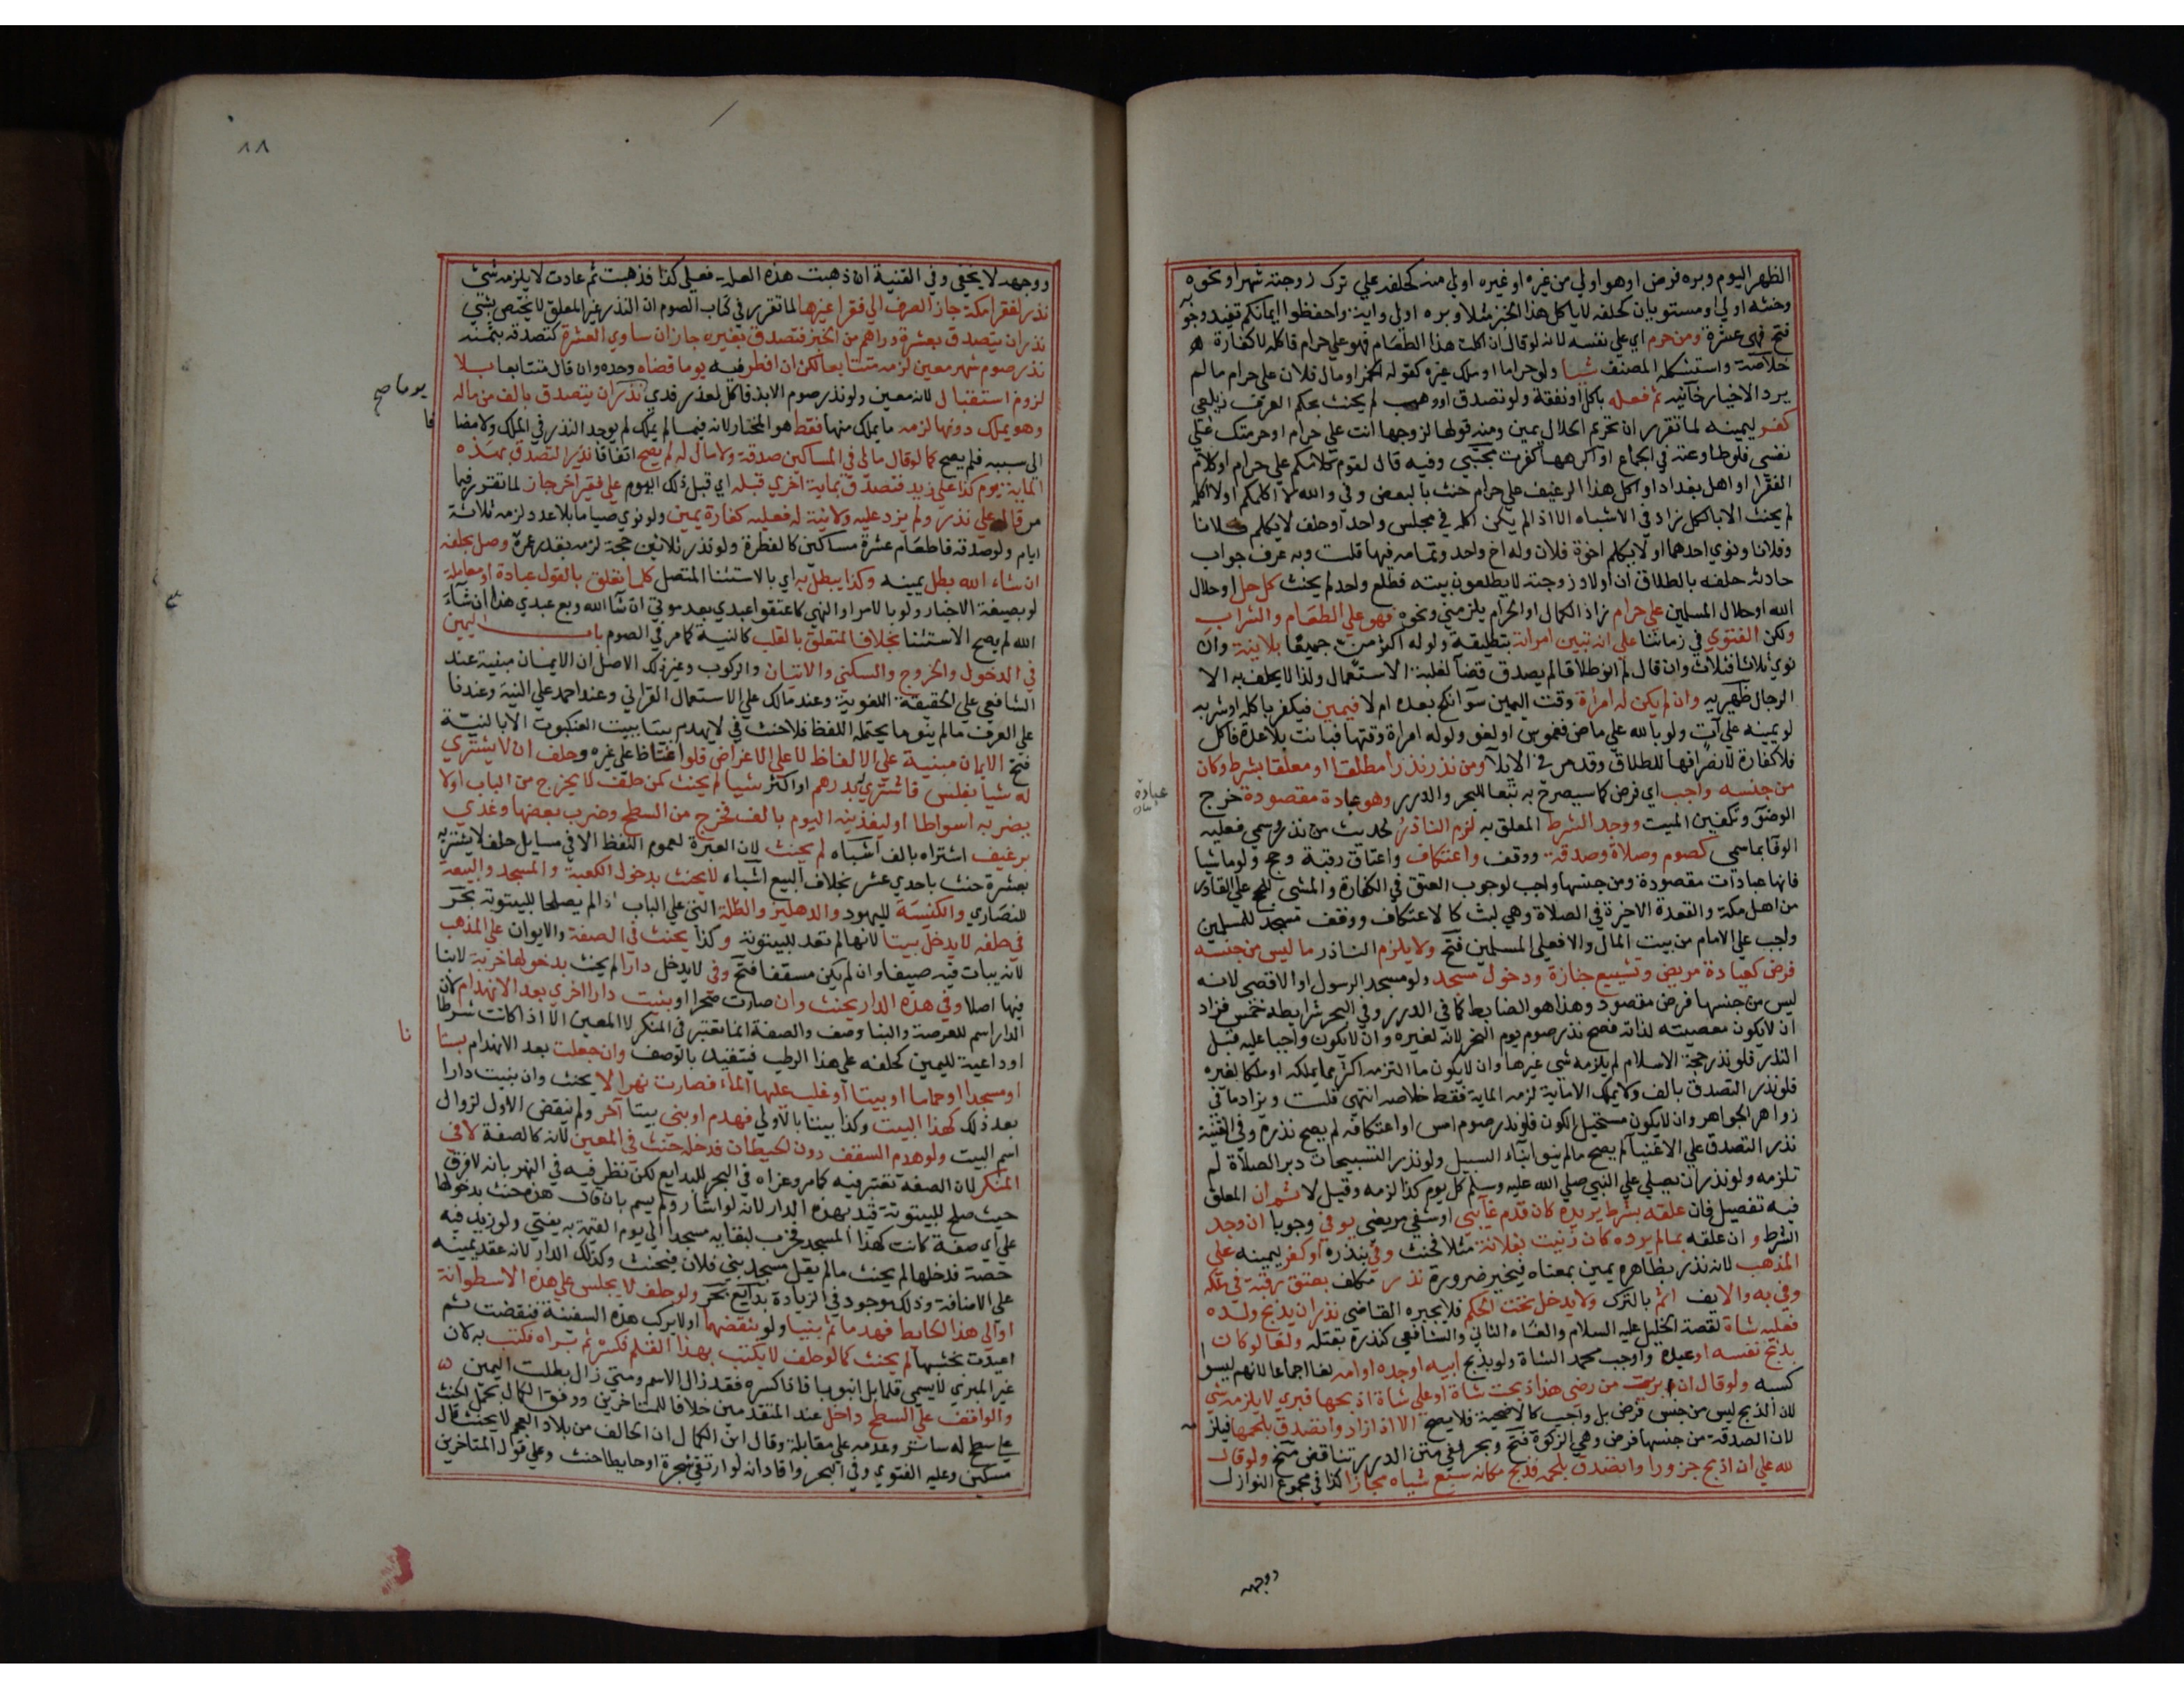 الظهر اليوم وبره فرض او هو اولي من غيره او غيره اولي منه كحلفه علي ترك زوجته شهرا ونحوه
وحنثه اولي او مستويان كحلفه لا ياكل هذا الخبز مثلا وبره اولي واية واحفظوا ايمانكم تفيد وجوبه
فتح فهي عشرة ومن حرم اي علي نفسه لانه لو قال ان اكلت هذا الطعام فهو علي حرام فاكله لا كفارة
خلاصة واستشكله المصنف شيا ولو حراما او ملك غيره كقوله الخمر او مال فلان علي حرام ما لم
يرد الاخبار خانيه ثم فعله باكل او نفقة ولو تصدق او وهب لم يحنث بحكم العرف زيلعي
كفر ليمينه لما تقرر ان تحريم الحلال يمين ومنه قولها لزوجها انت علي حرام او حرمتك علي
نفسي فلو طاوعته في الجماع او اكرهها كفرت مجتبي وفيه قال لقوم كلامكم علي حرام او كلام
الفقرا او اهل بغداد او اكل هذا الرغيف علي حرام حنث بالبعض وفي والله لا اكلمكم او لا اكله
لم يحنث الا بالكل زاد في الاشباه الا اذا لم يمكن اكله في مجلس واحد او حلف لا يكلم فلانا
وفلانا ونوي احدهما او لا يكلم اخوة فلان وله اخ واحد وتمامه فيها قلت وبه عرف جواب
حادثه حلفه بالطلاق ان اولاد زوجته لا يطلعون بيته فطلع واحد لم يحنث كل حل او حلال
الله او حلال المسلمين علي حرام زاد الكمال او الحرام يلزمني ونحوه فهو علي الطعام والشراب
ولكن الفتوي في زماننا علي انه تبين امراته بتطليقة ولو له اكثر من جميعا بلا نية وان
نوي ثلاثا فثلاث وان قال لم انو طلاقا لم يصدق قضآ لغلبة الاستعمال ولذا لا يحلف به الا
الرجال ظهيريه وان لم يكن له امرأة وقت اليمين سوآ نكح بعده ام لا فيمين فيكفر باكله او شربه
لو يمينه علي آت ولو بالله علي ماض فغموس او لغو ولو له امراة وقتها فبانت بلا عدة فاكل
فلا كفارة لانصرافها للطلاق وقد مر في الايلآ ومن نذر نذرا مطلقا او معلقا بشرط وكان
من جنسه واجب اي فرض كما سيصرح به تبعا للبحر والدرر وهو عبادة مقصودة خرج
الوضؤ وتكفين الميت ووجد الشرط المعلق به لزم الناذر لحديث من نذر وسمي فعليه
الوفا بما سمي كصوم وصلاة وصدقة ووقف واعتكاف واعتاق رقبة وحج ولو ماشيا
فانها عبادات مقصودة ومن جنسها واجب لوجوب العتق في الكفارة والمشي للحج علي القادر
من اهل مكة والقعدة الاخيرة في الصلاة وهي لبث كالاعتكاف ووقف مسجد للمسلمين
واجب علي الامام من بيت المال والا فعلي المسلمين فتح ولا يلزم الناذر ما ليس من جنسه
فرض كعيادة مريض وتشييع جنازة ودخول مسجد ولو مسجد الرسول او الاقصي لانه
ليس من جنسها فرض مقصود وهذا هو الضابط كما في الدرر وفي البحر شرايطه خمس فزاد
ان لا يكون معصيته لذاته فصح نذر صوم يوم النحر لانه لغيره وان لا يكون واجبا عليه قبل
النذر فلو نذر حجة الاسلام لم يلزمه شي غيرها وان لا يكون ما التزمه اكثر مما يملكه او ملكا لغيره
فلو نذر التصدق بالف ولا يملك الا ماية لزمه الماية فقط خلاصه انتهي قلت ويزاد ما في
زواهر الجواهر وان لا يكون مستحيل الكون فلو نذر صوم امس او اعتكافه لم يصح نذره وفي القنية
نذر التصدق علي الاغنيا لم يصح ما لم ينو ابنآء السبيل ولو نذر التسبيحات دبر الصلاة لم
تلزمه ولو نذر ان يصلي علي النبي صلي الله عليه وسلم كل يوم كذا لزمه وقيل لا ثم ان المعلق
فيه تفصيل فان علقه بشرط يريده كان قدم غآيبي او شفي مريضي يوفي وجوبا ان وجد
الشرط وان علقه بما لم يرده كان زنيت بفلانة مثلا فحنث وفي بنذره او كفر ليمينه علي
المذهب لانه نذر بظاهره يمين بمعناه فيخير ضرورة نذر مكلف بعتق رقبة في ملكه
وفي به والا يف اثم بالترك ولا يدخل تحت الحكم فلا يجبره القاضي نذر ان يذبح ولده
فعليه شاة لقصة الخليل عليه السلام والغاه الثاني والشافعي كنذره بقتله ولغا لو كان
بذبح نفسه او عبده واوجب محمد الشاة ولو بذبح ابيه او جده او امه لغا اجماعا لانهم ليسوا
كسبه ولو قال ان برئت من مرضي هذا ذبحت شاة او علي شاة اذبحها فبري لا يلزمه شي
لان الذبح ليس من جنس فرض بل واجب كالاضحية فلا يصح الا اذا زاد واتصدق بلحمها فيلزمه
لان الصدقة من جنسها فرض وهي الزكوة فتح وبحر ففي متن الدرر تناقض منح ولو قال
لله علي ان اذبح جزورا واتصدق بلحمه فذبح مكانه سبع شياه مجازا كذا في مجموع النوازل
ووجهه
عبادة
٨٨
ووجهه لا يخفي وفي القنية ان ذهبت هذه العلة فعلي كذا فذهبت ثم عادت لا يلزمه شئ
نذر لفقرا مكة جاز الصرف الي فقرا غيرها لما تقرر في كتاب الصوم ان النذر غير المعلق لا يختص بشئ
نذر ان يتصدق بعشرة دراهم من الخبز فتصدق بغيره جاز ان ساوي العشرة كتصدقه بثمنه
نذر صوم شهر معين لزمه متتابعا لكن ان افطر فيه يوما قضاه وحده وان قال متتابعا بلا
لزوم استقبال لانه معين ولو نذر صوم الابد فاكل لعذر فدي نذر ان يتصدق بالف من ماله
وهو يملك دونها لزمه ما يملك منها فقط هو المختار لانه فيما لم يملك لم يوجد النذر في الملك ولا مضافا
الي سببه فلم يصح كما لو قال مالي في المساكين صدقة ولا مال له لم يصح اتفاقا نذر التصدق بهذه
الماية يوم كذا علي زيد فتصدق بماية اخري قبله اي قبل ذلك اليوم علي فقير آخر جاز لما تقرر فيما
مر قال علي نذر ولم يزد عليه ولا نية له فعليه كفارة يمين ولو نوي صياما بلا عدد لزمه ثلاثة
ايام ولو صدقه فاطعام عشرة مساكين كالفطرة ولو نذر ثلاثين حجة لزمه بقدر عمره وصل بحلفه
ان شاء الله بطل يمينه وكذا يبطل به اي بالاستثنا المتصل كلما تعلق بالقول عبادة او معاملة
لو بصيغة الاخبار ولو بالامر او النهي كاعتقوا عبدي بعد موتي ان شآ الله وبع عبدي هذا ان شآء
الله لم يصح الاستثنا بخلاف المتعلق بالقلب كالنية كما مر في الصوم باب اليمين
في الدخول والخروج والسكني والاتيان والركوب وغير ذلك الاصل ان الايمان مبنية عند
الشافعي علي الحقيقة اللغوية وعند مالك علي الاستعمال القراني وعند احمد علي النية وعندنا
علي العرف ما لم ينو ما يحتمله اللفظ فلا حنث في لا يهدم بيتا ببيت العنكبوت الا بالنية
فتح الايمان مبنية علي الالفاظ لا علي الاغراض فلو اغتاظ علي غيره وحلف ان لا يشتري
له شيا بفلس فاشتري بدرهم او اكثر شيا لم يحنث كمن حلف لا يخرج من الباب او لا
يضربه اسواطا او ليغدينه اليوم بالف فخرج من السطح وضرب بعضها وغدي
برغيف اشتراه بالف اشباه لم يحنث لان العبرة لعموم اللفظ الا في مسايل حلف لا يشتريه
بعشرة حنث باحدي عشر بخلاف البيع اشباه لا يحنث بدخول الكعبة والمسجد والبيعة
للنصاري والكنيسة لليهود والدهليز والظلة التي علي الباب اذا لم يصلحا للبيتوتة بحر
في حلفه لا يدخل بيتا لانها لم تعد للبيتوتة وكذا يحنث في الصفة والايوان علي المذهب
لانه يبات فيه صيفا وان لم يكن مسقفا فتح وفي لا يدخل دارا لم يحنث بدخولها خربة لا بنا
فيها اصلا وفي هذه الدار يحنث وان صارت صحرا او بنيت دارا اخري بعد الانهدام لان
الدار اسم للعرصة والبنا وصف والصفة انما تعتبر في المنكر لا المعين الا اذا كانت شرطا
او داعية لليمين كحلفه علي هذا الرطب فيتقيد بالوصف وان جعلت بعد الانهدام بستانا
او مسجدا او حماما او بيتا او غلب عليها المآء فصارت نهرا لا يحنث وان بنيت دارا
بعد ذلك كهذا البيت وكذا بيتا بالاولي فهدم او بني بيتا آخر ولو بنقض الاول لزوال
اسم البيت ولو هدم السقف دون الحيطان فدخله حنث في المعين لانه كالصفة لا في
المنكر لان الصفة تعتبر فيه كما مر وعزاه في البحر للبدايع لكن نظر فيه في النهر بانه لا فرق
حيث صلح للبيتوتة قيد بهذه الدار لانه لو اشار ولم يسم بان قال هذه حنث بدخولها
علي اي صفة كانت كهذا المسجد فخرب لبقايه مسجدا الي يوم القيمة به يفتي ولو زيد فيه
حصة فدخلها لم يحنث ما لم يقل مسجد بني فلان فيحنث وكذلك الدار لانه عقد يمينه
علي الاضافة وذلك موجود في الزيادة بدآيع بحر ولو حلف لا يجلس علي هذه الاسطوانة
او الي هذا الحايط فهدما ثم بنيا ولو بنقضهما او لا يركب هذه السفينة فنقضت ثم
اعيدت بخشبها لم يحنث كما لو حلف لا يكتب بهذا القلم فكسره ثم براه فكتب به لان
غير المبري لا يسمي قلما بل انبوبا فاذا كسره فقد زال الاسم ومتي زال بطلت اليمين
والواقف علي السطح داخل عند المتقدمين خلافا للمتاخرين ووفق الكمال بحمل الحنث
علي سطح له ساتر وعدمه علي مقابله وقال ابن الكمال ان الحالف من بلاد العجم لا يحنث قال
مسكين وعليه الفتوي وفي البحر وافاد انه لو ارتقي شجرة او حايطا حنث وعلي قول المتاخرين
يوما صح
فا
نا